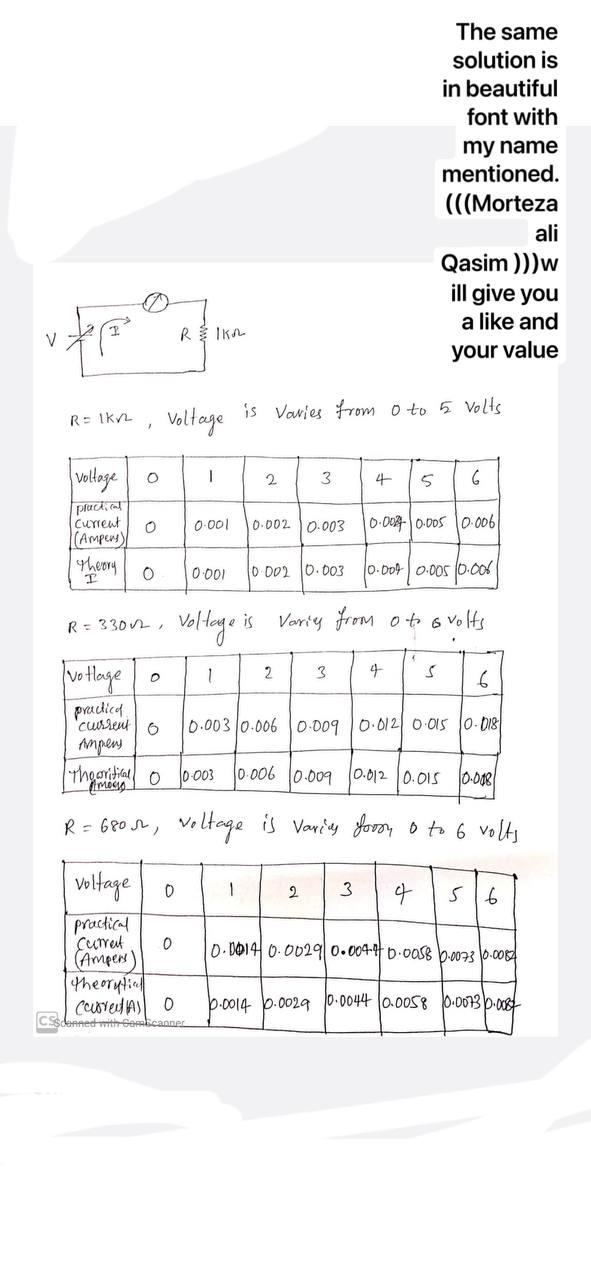 The same
solution is
in beautiful
font with
my name
mentioned.
(((Morteza
ali
Qasim )))w
ill give you
a like and
your value
V
I
R
1KΩ
R = 1KΩ , Voltage is Varies from 0 to 5 Volts
Voltage 0 1 2 3 4 5 6
practical
Current
(Ampers) 0 0.001 0.002 0.003 0.004 0.005 0.006
Theory
I 0 0.001 0.002 0.003 0.004 0.005 0.006
R = 330Ω , Voltage is Varies from 0 to 6 volts
Votlage 0 1 2 3 4 5 6
practical
current
Ampers 0 0.003 0.006 0.009 0.012 0.015 0.018
0 0.003 0.006 0.009 0.012 0.015 0.018
R = 680Ω , voltage is Varies from 0 to 6 volts
voltage 0 1 2 3 4 5 6
practical
Current
(Ampers) 0 0.0014 0.0029 0.0044 0.0058 0.0073 0.0082
0 0.0014 0.0029 0.0044 0.0058 0.0073
CS Scanned with CamScanner